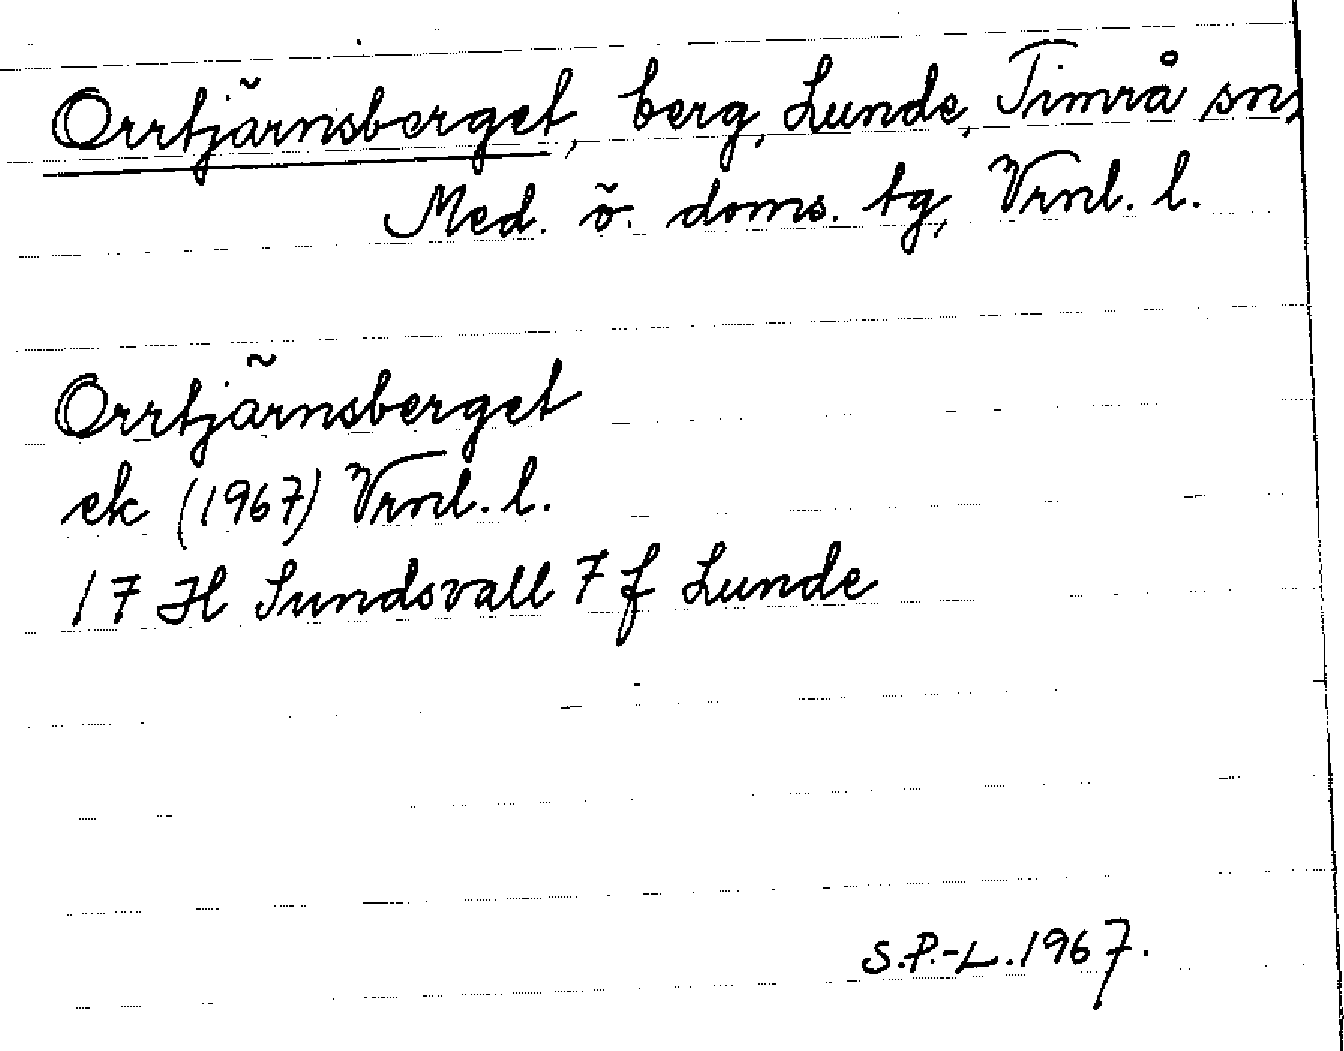 Orrtjärnsberget, berg, Lunde, Timrå sn,
Med. ö. doms. tg, Vrnl. l.
Orrtjärnsberget
ek (1967) Vrnl. l.
17 H Sundsvall 7 f Lunde
S.P.-L. 1967.